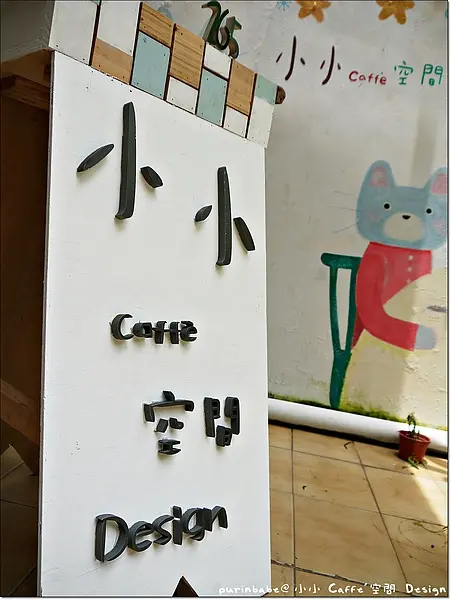 小小 Caffé 空間
小小
Caffé
空間
Design
purinbabe@小小 Caffe'空間 Design